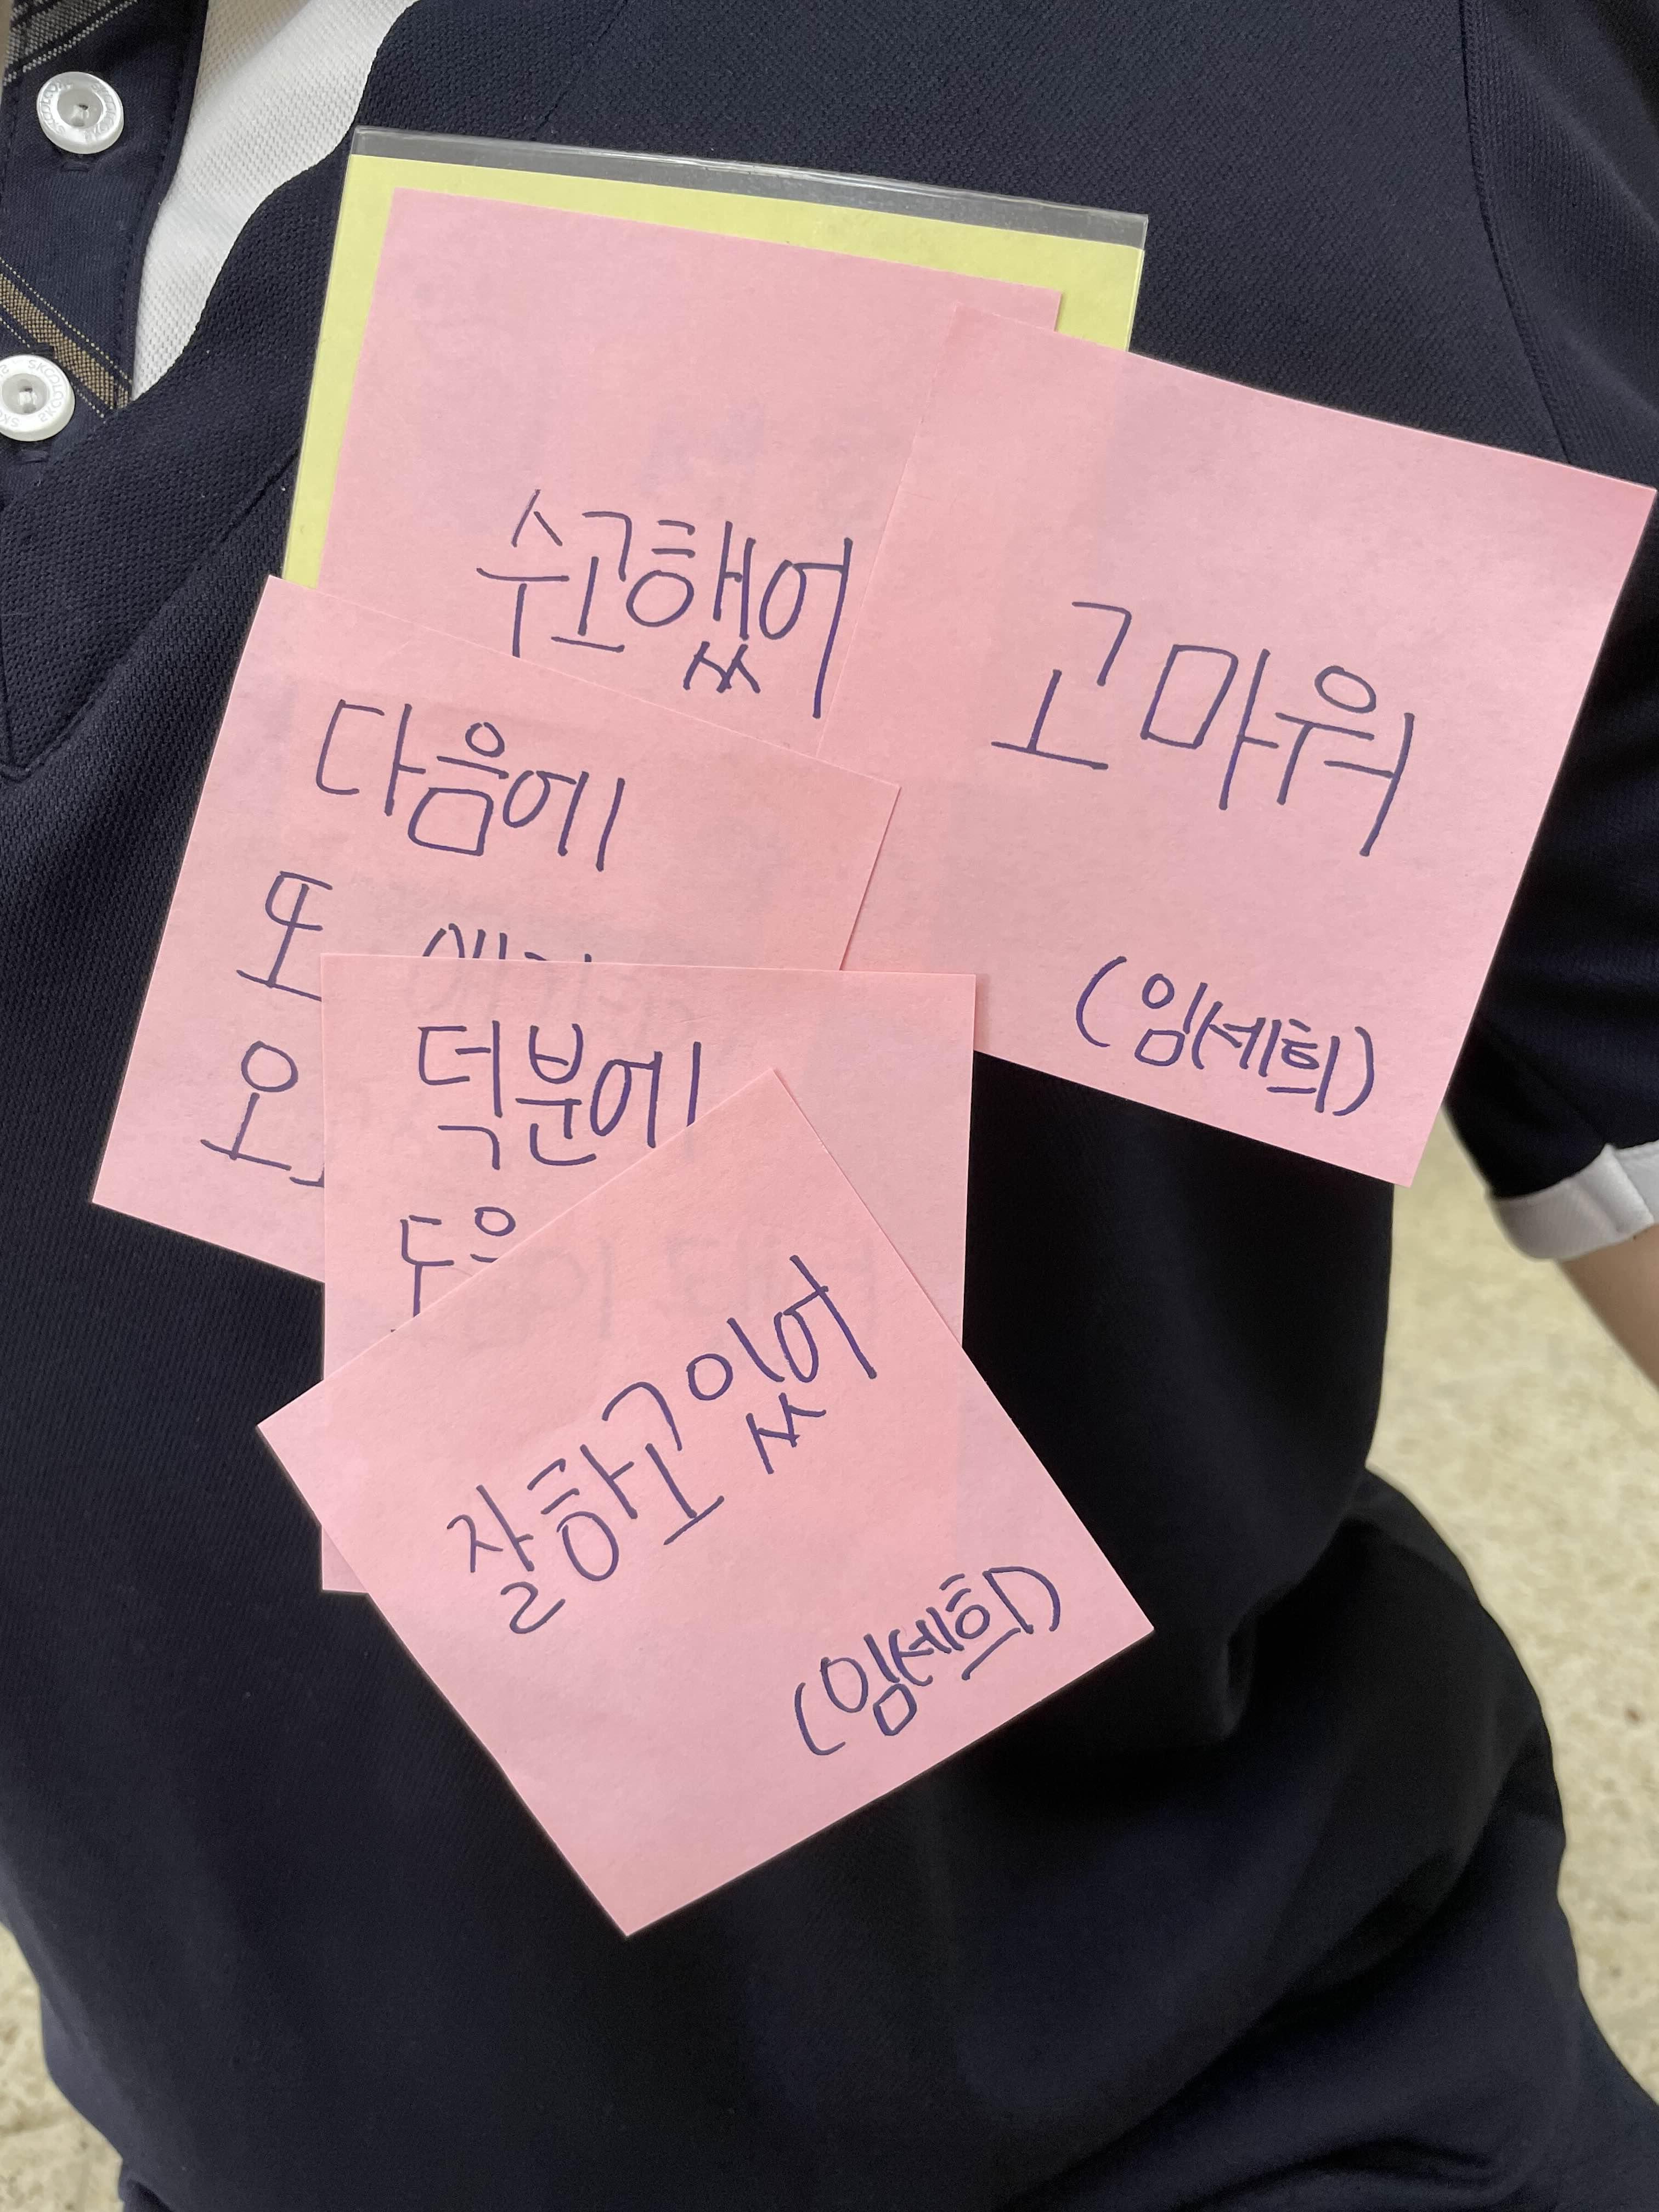 수고했어
고마워
(임세희)
다음에
또
덕분에
잘하고 있어
(임세희)